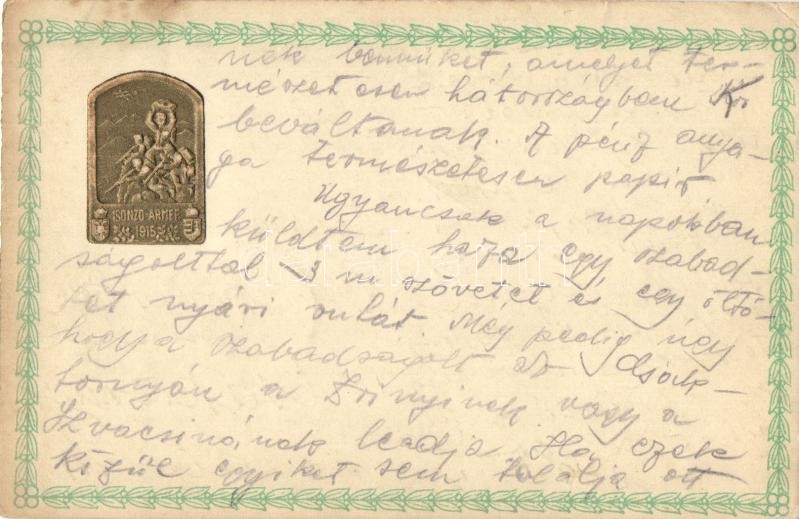 nek bennünket, amelyet ter-
mészetesen hátországban
beváltanak. A pénz anya-
ga természetesen papir
Ugyancsak a napokban
küldtem haza egy szabad-
ságolttal 3 m szövetet és egy öltö-
zet nyári ruhát. Még pedig úgy
hogy a szabadságolt az Csák-
tornyán a Zrinyinek vagy a
leadja Ha ezek
közül egyiket sem találja ott
ISONZO-ARMEE
1915
darabanth